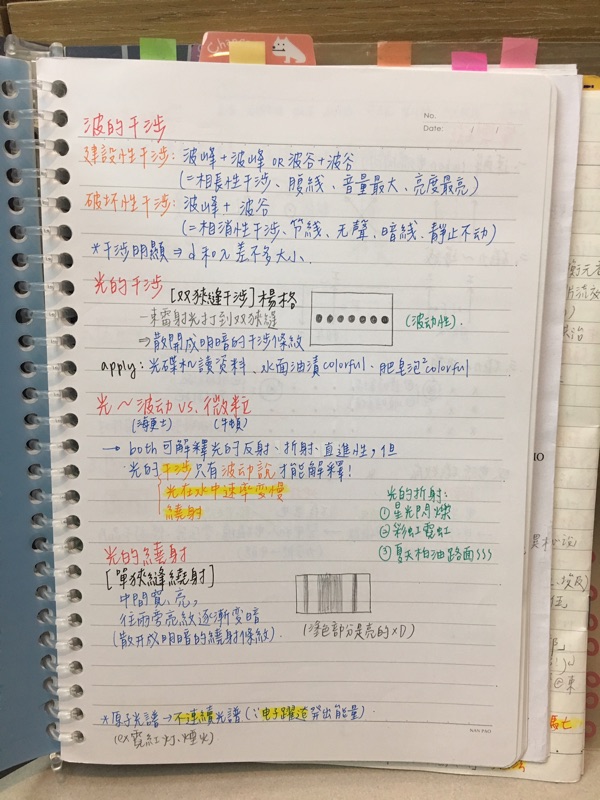 No.
Date: / /
波的干涉
建設性干涉: 波峰+波峰 or 波谷+波谷
(=相長性干涉、腹線、音量最大、亮度最亮)
破坏性干涉: 波峰+波谷
(=相消性干涉、节線、无聲、暗線、靜止不动)
*干涉明顯 ⇒ d和λ差不多大小.
光的干涉 [双狹縫干涉] 楊格
一束雷射光打到双狹縫
⇒散開成明暗的干涉條紋
(波动性).
apply: 光碟机讀資料、水面油漬colorful、肥皂泡²colorful
光~波动 vs. 微粒
(海更士) (牛頓)
→ both可解釋光的反射、折射、直進性, 但
光的干涉只有波动說才能解釋!
光在水中速率变慢
繞射
光的折射:
①星光閃爍
②彩虹霓虹
③夏天柏油路面SSS
光的繞射
[單狹縫繞射]
中間寬、亮,
往兩旁亮紋逐漸变暗
(散开成明暗的繞射條紋).
(淺色部分是亮的XD)
*原子光譜→不連續光譜(∵电子躍遷發出能量)
(ex 霓紅灯、煙火)
NAN PAO
10